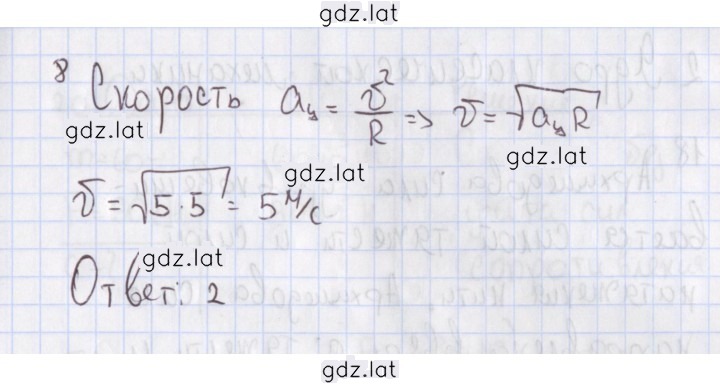 gdz.lat
8 Скорость a_ц = v²/R => v = √(a_ц R)
gdz.lat
gdz.lat
v = √(5·5) = 5 м/с
gdz.lat
gdz.lat
Ответ: 2
gdz.lat